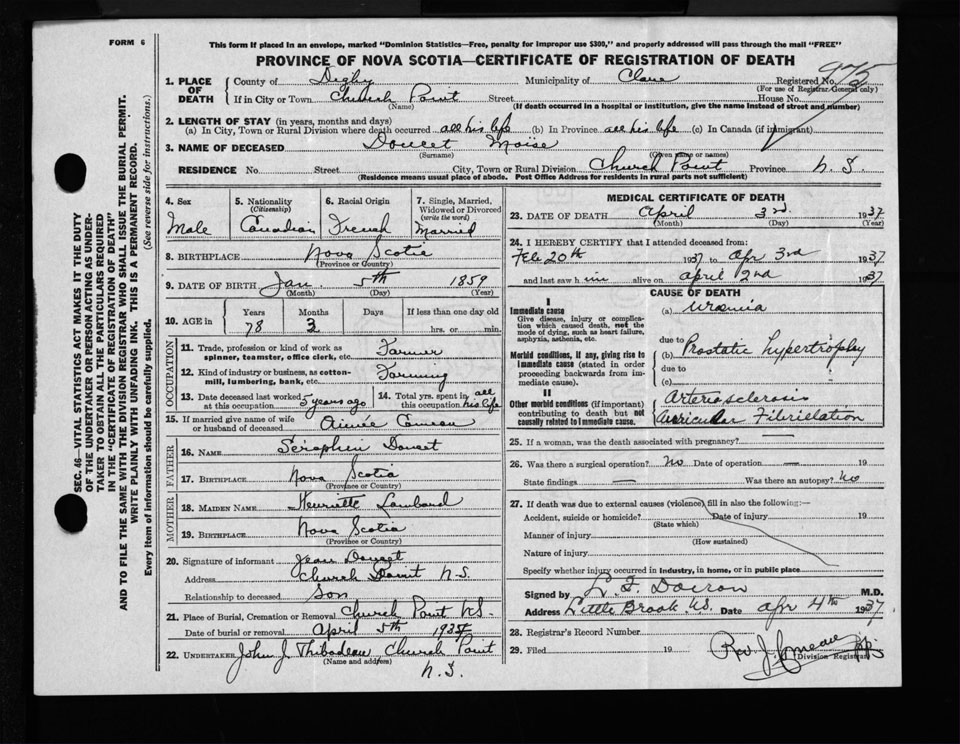 FORM 6
This form if placed in an envelope, marked "Dominion Statistics—Free, penalty for improper use $300," and properly addressed will pass through the mail "FREE"
PROVINCE OF NOVA SCOTIA—CERTIFICATE OF REGISTRATION OF DEATH
1. PLACE OF DEATH
County of Digby Municipality of Clare Registered No. 975
(For use of Registrar General only)
If in City or Town Church Point Street House No.
(Name) (If death occurred in a hospital or institution, give the name instead of street and number)
2. LENGTH OF STAY (in years, months and days)
(a) In City, Town or Rural Division where death occurred all his life (b) In Province all his life (c) In Canada (if immigrant)
3. NAME OF DECEASED Doucet Moise
(Surname) (Given name or names)
RESIDENCE No. Street City, Town or Rural Division Church Point Province N.S.
(Residence means usual place of abode. Post Office Address for residents in rural parts not sufficient)
4. Sex 5. Nationality (Citizenship) 6. Racial Origin 7. Single, Married, Widowed or Divorced (write the word)
Male Canadian French Married
8. BIRTHPLACE Nova Scotia
(Province or Country)
9. DATE OF BIRTH Jan. 5th 1859
(Month) (Day) (Year)
10. AGE in Years Months Days If less than one day old
78 3 hrs. or min.
OCCUPATION
11. Trade, profession or kind of work as spinner, teamster, office clerk, etc. Farmer
12. Kind of industry or business, as cotton-mill, lumbering, bank, etc. Farming
13. Date deceased last worked at this occupation 5 years ago 14. Total yrs. spent in this occupation all his life
15. If married give name of wife or husband of deceased Aimée Comeau
FATHER
16. NAME Séraphin Doucet
17. BIRTHPLACE Nova Scotia
(Province or Country)
MOTHER
18. MAIDEN NAME Henriette Lombard
19. BIRTHPLACE Nova Scotia
(Province or Country)
20. Signature of informant Jean Doucet
Address Church Point N.S.
Relationship to deceased Son
21. Place of Burial, Cremation or Removal Church Point N.S.
Date of burial or removal April 5th 1937
22. UNDERTAKER John J Thibodeau Church Point
(Name and address)
N.S.
MEDICAL CERTIFICATE OF DEATH
23. DATE OF DEATH April 3rd 1937
(Month) (Day) (Year)
24. I HEREBY CERTIFY that I attended deceased from:
Feb 20th 1937 to Apr 3rd 1937
and last saw him alive on April 2nd 1937
CAUSE OF DEATH
I
Immediate cause
Give disease, injury or complication which caused death, not the mode of dying, such as heart failure, asphyxia, asthenia, etc.
(a) Uraemia
due to
Morbid conditions, if any, giving rise to immediate cause (stated in order proceeding backwards from immediate cause).
(b) Prostatic hypertrophy
due to
(c)
II
Other morbid conditions (if important) contributing to death but not causally related to immediate cause.
Arteriosclerosis
Auricular Fibrielation
25. If a woman, was the death associated with pregnancy?
26. Was there a surgical operation? No Date of operation 19
State findings Was there an autopsy? No
27. If death was due to external causes (violence) fill in also the following:—
Accident, suicide or homicide? Date of injury 19
(State which)
Manner of injury
(How sustained)
Nature of injury
Specify whether injury occurred in industry, in home, or in public place
Signed by L. F. Doiron M.D.
Address Little Brook N.S. Date Apr 4th 1937
28. Registrar's Record Number
29. Filed 19 Rev. J. Comeau
Division Registrar
SEC. 46—VITAL STATISTICS ACT MAKES IT THE DUTY
OF THE UNDERTAKER OR PERSON ACTING AS UNDER-
TAKER TO OBTAIN ALL THE PARTICULARS REQUIRED
IN THE "CERTIFICATE OF REGISTRATION OF DEATH"
AND TO FILE THE SAME WITH THE DIVISION REGISTRAR WHO SHALL ISSUE THE BURIAL PERMIT.
WRITE PLAINLY WITH UNFADING INK. THIS IS A PERMANENT RECORD.
Every item of information should be carefully supplied. (See reverse side for instructions.)